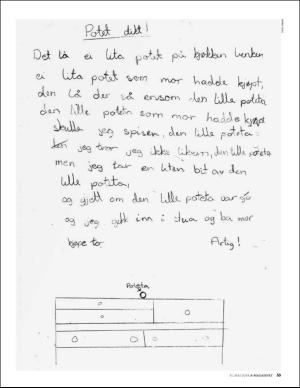 Potet dikt!
Det lå ei lita potet på kjøkken benken
ei lita potet som mor hadde kjøpt,
den lå der så ensom den lille poteta
den lille poteta som mor hadde kjøpt
skulle jeg spisen, den lille poteta.
jeg tror jeg ikke liker'n, den lille poteta
men jeg tar en liten bit av den
lille poteta,
og gjett om den lille poteta var
og jeg gikk inn i stua og ba mor
Artig!
Poteta